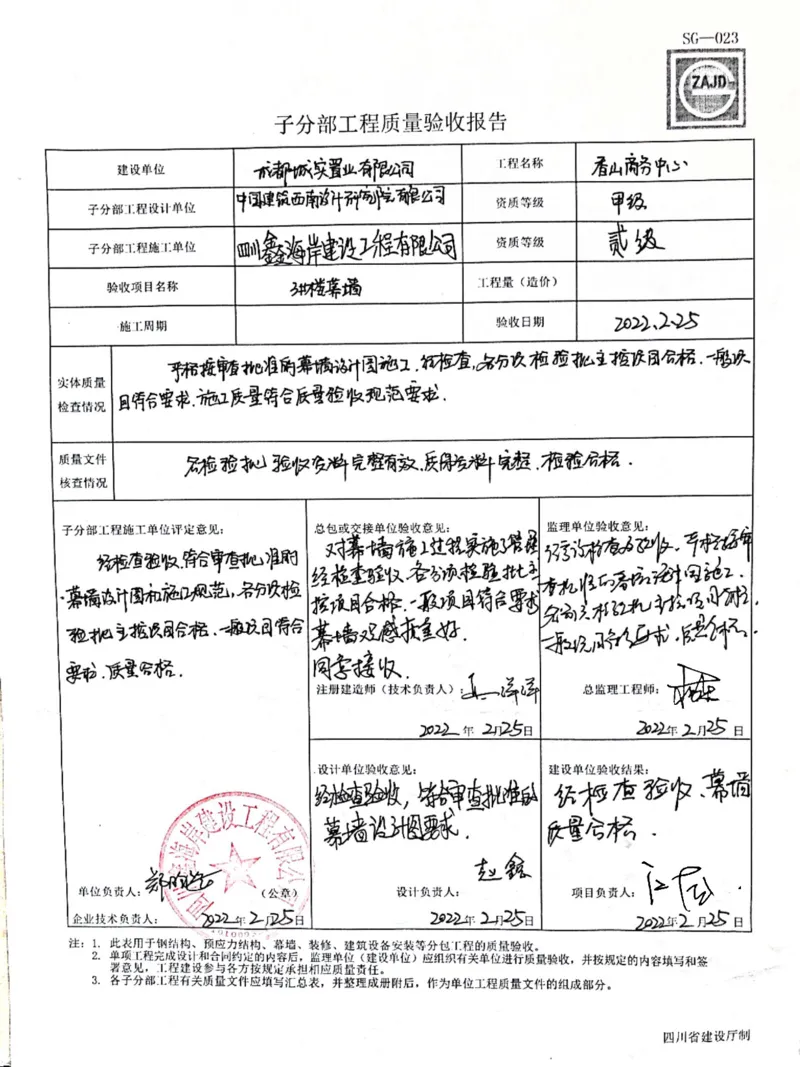 SG—023
ZAJD
子分部工程质量验收报告
建设单位 成都城实置业有限公司 工程名称 香山商务中心
子分部工程设计单位 中国建筑西南设计研究院有限公司 资质等级 甲级
子分部工程施工单位 四川鑫海岸建设工程有限公司 资质等级 贰级
验收项目名称 3#楼幕墙 工程量（造价）
施工周期 验收日期 2022.2.25
实体质量
检查情况
严格按审查批准的幕墙设计图施工.经检查,各分项检验批主控项目合格.一般项
目符合要求.施工质量符合质量验收规范要求.
质量文件
核查情况
各检验批验收资料完整有效.质保资料完整.检验合格.
子分部工程施工单位评定意见：
经检查验收,符合审查批准的
幕墙设计图和施工规范,各分项检
验批主控项目合格.一般项目符合
要求.质量合格.
单位负责人： （公章）
企业技术负责人： 2022年2月25日
总包或交接单位验收意见：
对幕墙施工过程实施了管理
经检查验收.各分项检验批主
控项目合格.一般项目符合要求
幕墙观感质量好.
同意接收.
注册建造师（技术负责人）：
2022年2月25日
监理单位验收意见：
总监理工程师：
2022年2月25日
设计单位验收意见：
经检查验收,符合审查批准的
幕墙设计图要求.
设计负责人： 赵鑫
2022年2月25日
建设单位验收结果：
经检查验收.幕墙
质量合格.
项目负责人：
2022年2月25日
注：1. 此表用于钢结构、预应力结构、幕墙、装修、建筑设备安装等分包工程的质量验收。
2. 单项工程完成设计和合同约定的内容后，监理单位（建设单位）应组织有关单位进行质量验收，并按规定的内容填写和签
署意见，工程建设参与各方按规定承担相应质量责任。
3. 各子分部工程有关质量文件应填写汇总表，并整理成册附后，作为单位工程质量文件的组成部分。
四川省建设厅制